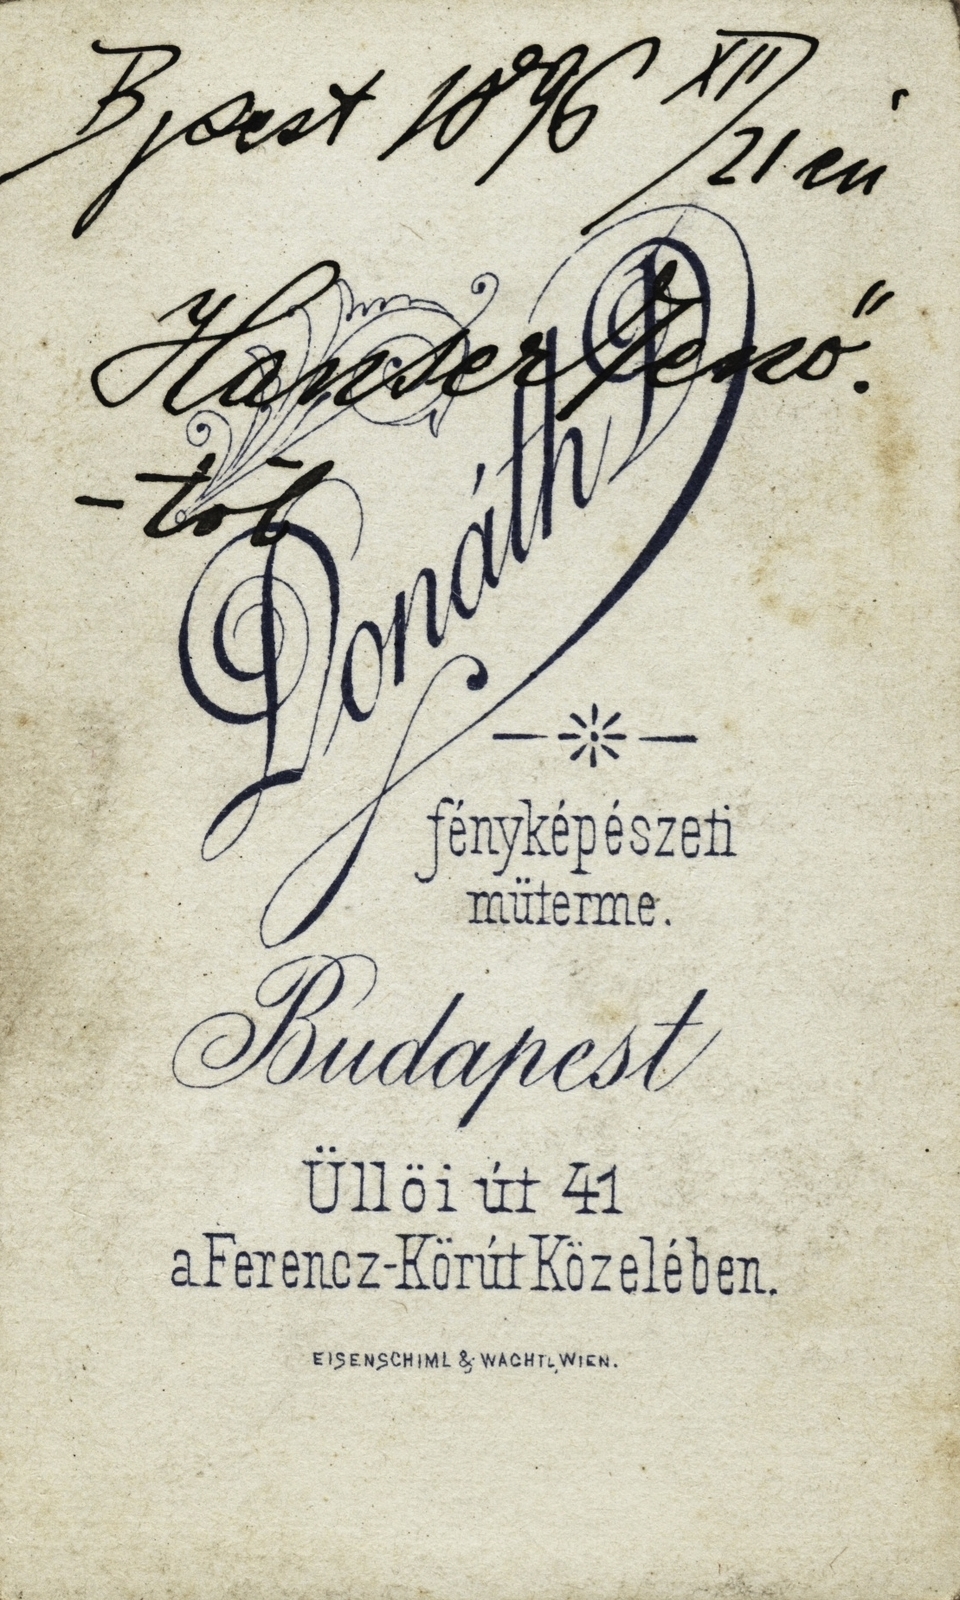 Bpest 1896 XII/21 én
Hanser Jenő.
-től
Donáth D
fényképészeti
müterme.
Budapest
Üllöi út 41
a Ferencz-Körút Közelében.
EISENSCHIML & WACHTL, WIEN.